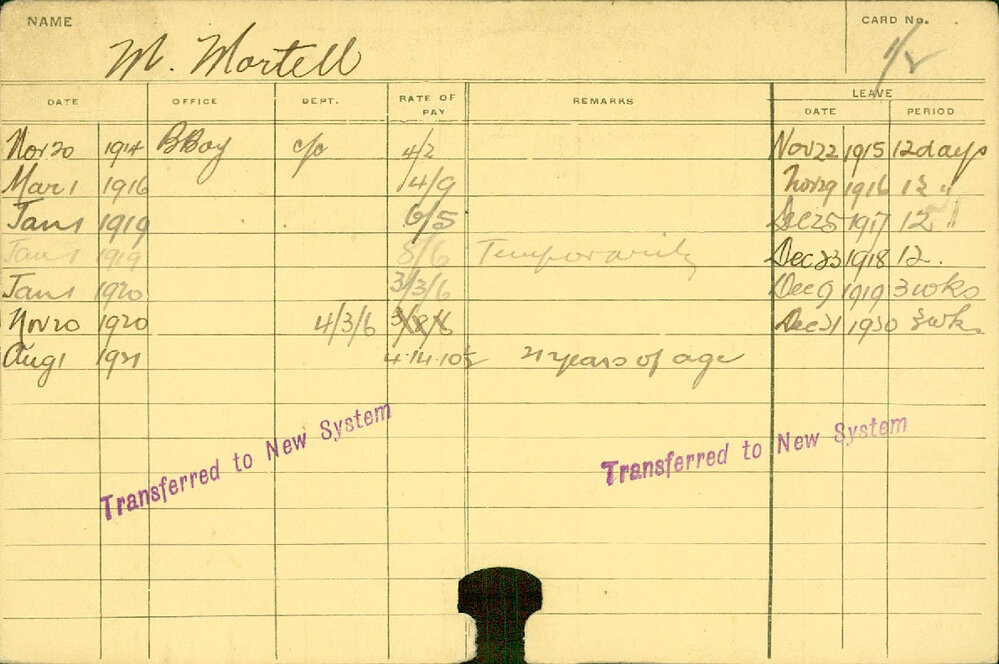 NAME
CARD No.
M. Mortell
1/2
DATE OFFICE DEPT. RATE OF PAY REMARKS LEAVE
DATE PERIOD
Nov 20 1914 BBoy c/o 4/2 Nov 22 1915 12 days
Mar 1 1916 4/9 Nov 29 1916 12 "
Jan 1 1919 6/5 Dec 25 1917 12 "
Jan 1 1919 8/6 Temporarily Dec 23 1918 12.
Jan 1 1920 3/3/6 Dec 9 1919 3 wks
Nov 20 1920 4/3/6 Dec 31 1920 3 wk.
Aug 1 1921 4.14.10½ 21 years of age
Transferred to New System
Transferred to New System